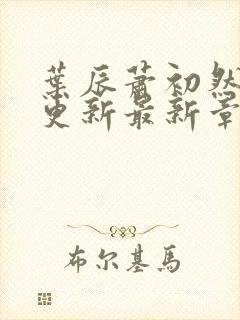 葉辰蕭初然
更新最新章
布尔基馬